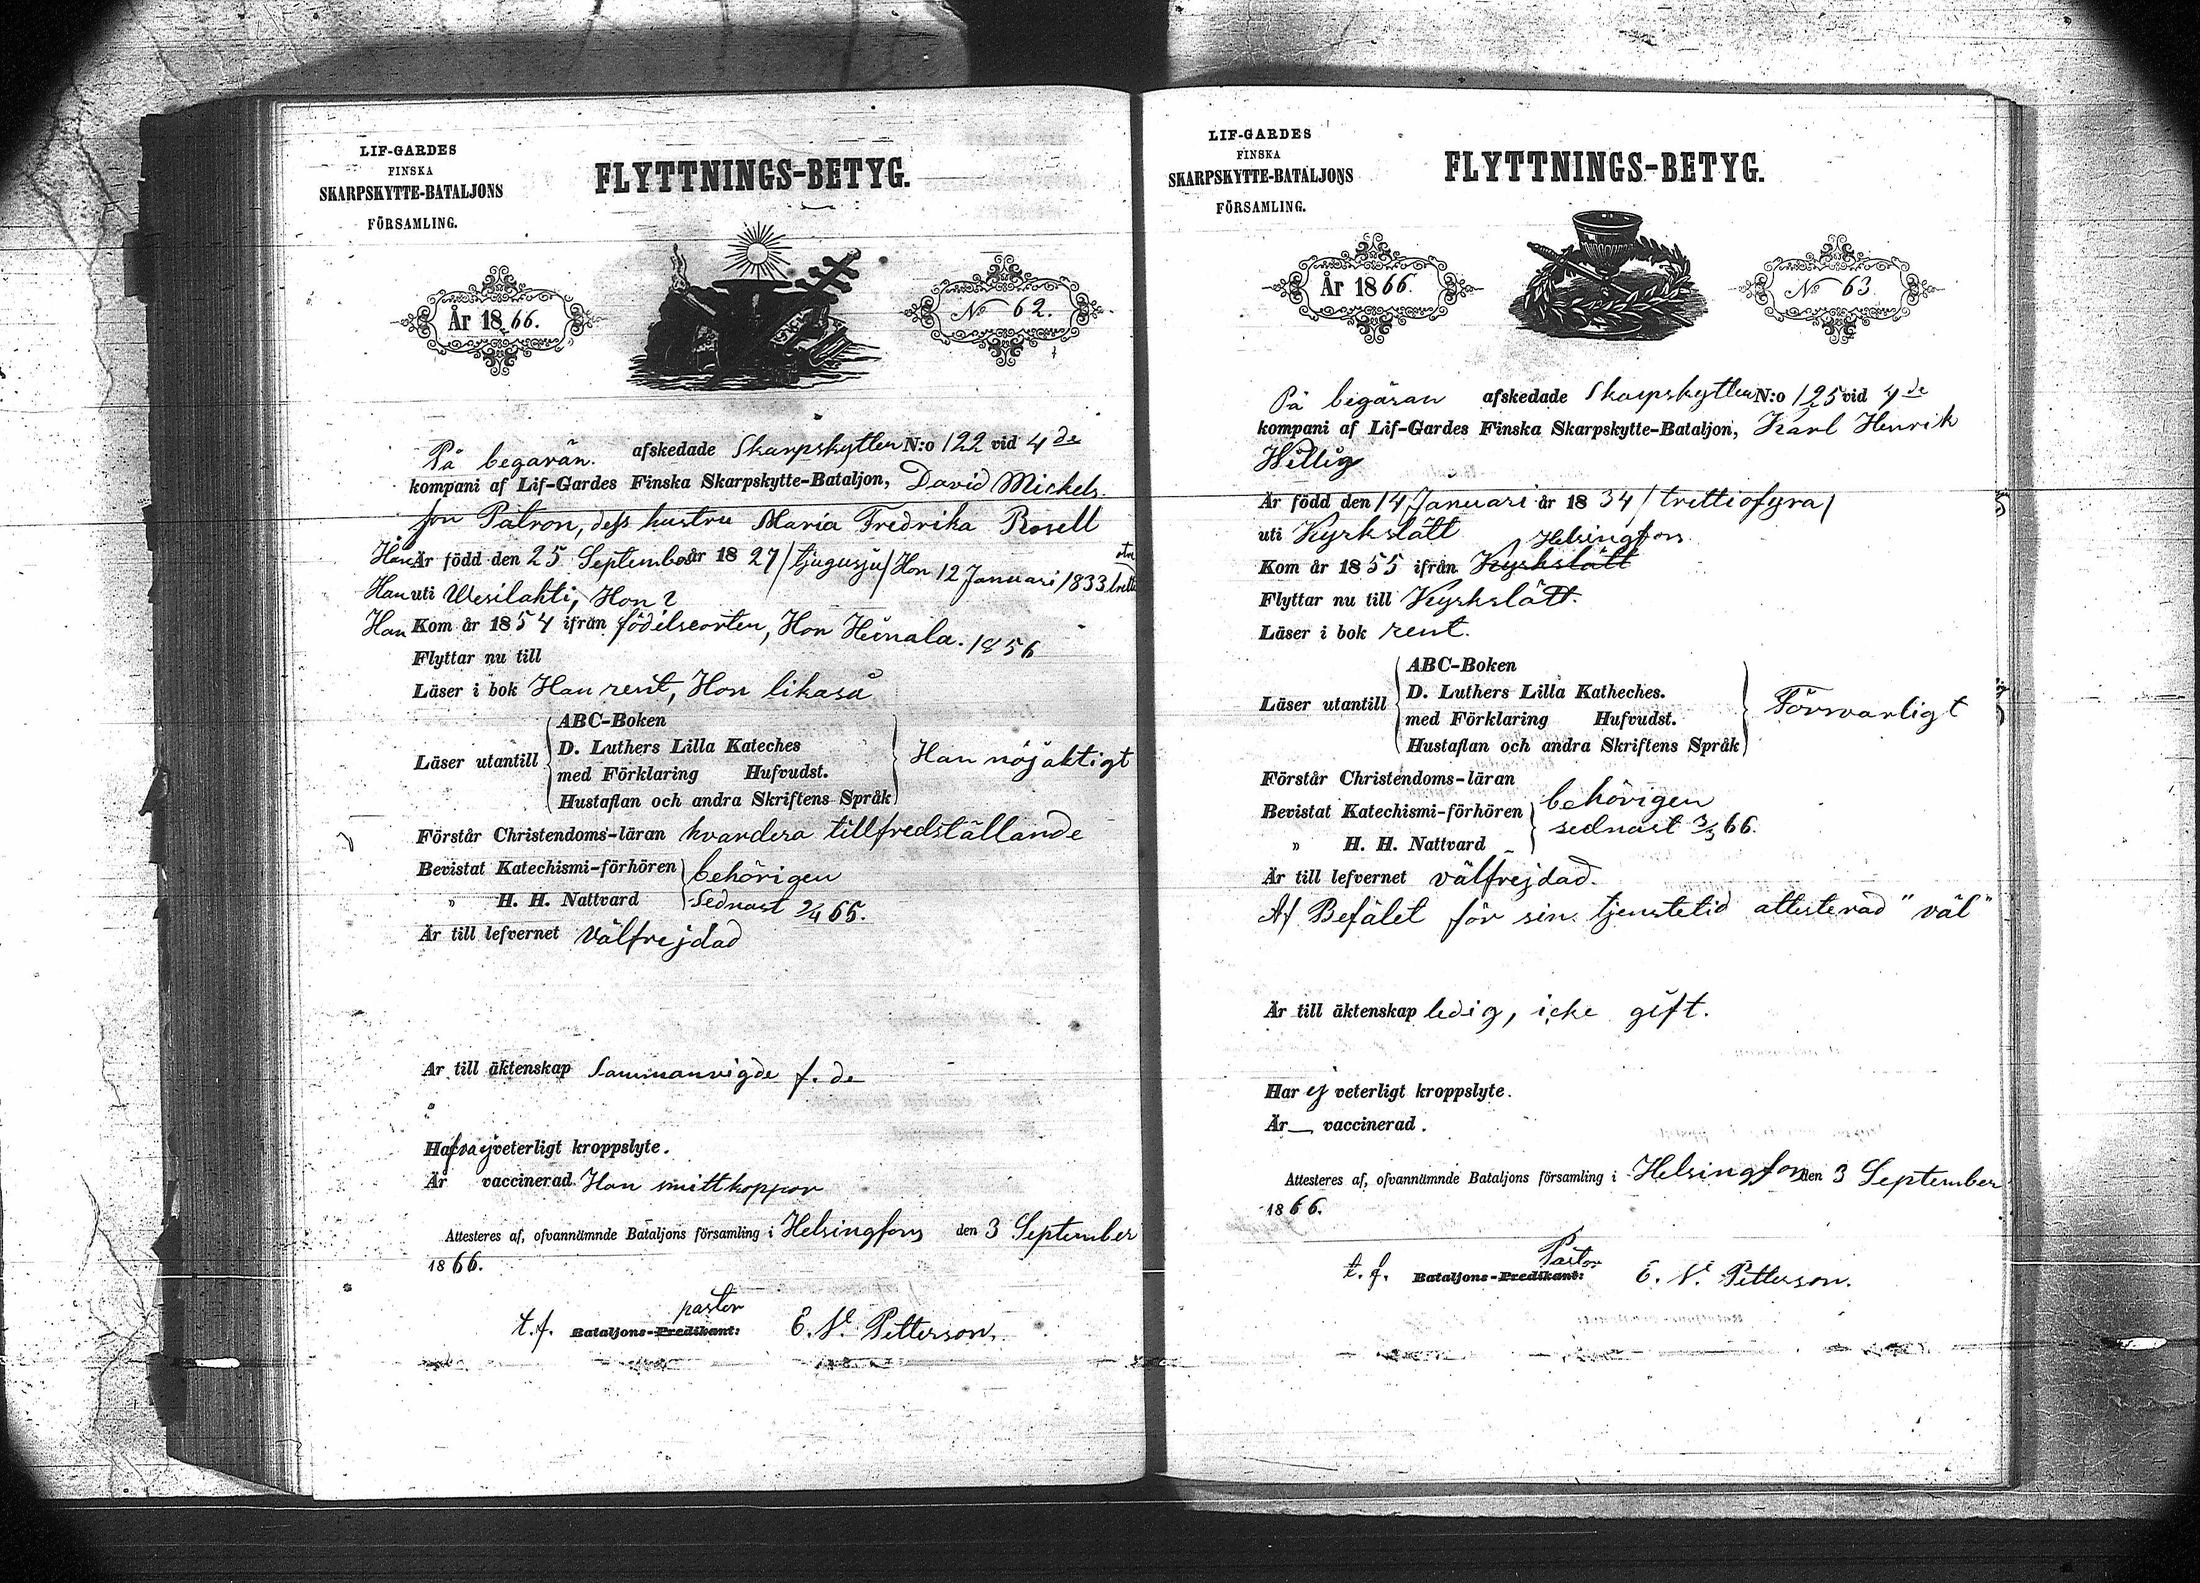 LIF-GARDES
FINSKA
SKARPSKYTTE-BATALJONS
FÖRSAMLING.
FLYTTNINGS-BETYG.
År 1866.
No 62.
På begäran. afskedade Skarpskytten N:o 122 vid 4de
kompani af Lif-Gardes Finska Skarpskytte-Bataljon, David Michels-
son Patron, dess hustru Maria Fredrika Rosell
Han Är född den 25 September år 1827 / tjugusju / Hon 12 Januari 1833
Han uti Wesilahti, Hon?
Han Kom år 1854 ifrån födelseorten, Hon Heinala. 1856
Flyttar nu till
Läser i bok Han rent, Hon likaså
Läser utantill
ABC-Boken
D. Luthers Lilla Kateches
med Förklaring Hufvudst.
Hustaflan och andra Skriftens Språk
Han nöjaktigt
Förstår Christendoms-läran hvardera tillfredställande
Bevistat Katechismi-förhören
" H. H. Nattvard
behörigen
Sednast 2/4 65.
Är till lefvernet Välfrejdad
Är till äktenskap Sammanvigde f. de
Hafva ej veterligt kroppslyte.
Är vaccinerad. Han smittkoppor
Attesteres af, ofvannämnde Bataljons församling i Helsingfors den 3 September
1866.
pastor
t.f. Bataljons-Predikant: E. N. Petterson.
LIF-GARDES
FINSKA
SKARPSKYTTE-BATALJONS
FÖRSAMLING.
FLYTTNINGS-BETYG.
År 1866.
No 63.
På begäran afskedade Skarpskytten N:o 125 vid 4de
kompani af Lif-Gardes Finska Skarpskytte-Bataljon, Karl Henrik
Willig
Är född den 14 Januari år 1834 / trettiofyra /
uti Kyrkslätt
Helsingfors
Kom år 1855 ifrån Kyrkslätt
Flyttar nu till Kyrkslätt.
Läser i bok rent.
Läser utantill
ABC-Boken
D. Luthers Lilla Katheches.
med Förklaring Hufvudst.
Hustaflan och andra Skriftens Språk
Försvarligt
Förstår Christendoms-läran
Bevistat Katechismi-förhören
" H. H. Nattvard
behörigen
sednast 3/3 66.
Är till lefvernet välfrejdad.
Af Befälet för sin tjenstetid attesterad "väl"
Är till äktenskap ledig, icke gift.
Har ej veterligt kroppslyte.
Är — vaccinerad.
Attesteres af, ofvannämnde Bataljons församling i Helsingfors den 3 September
1866.
Pastor
t. f. Bataljons-Predikant: E. N. Petterson.